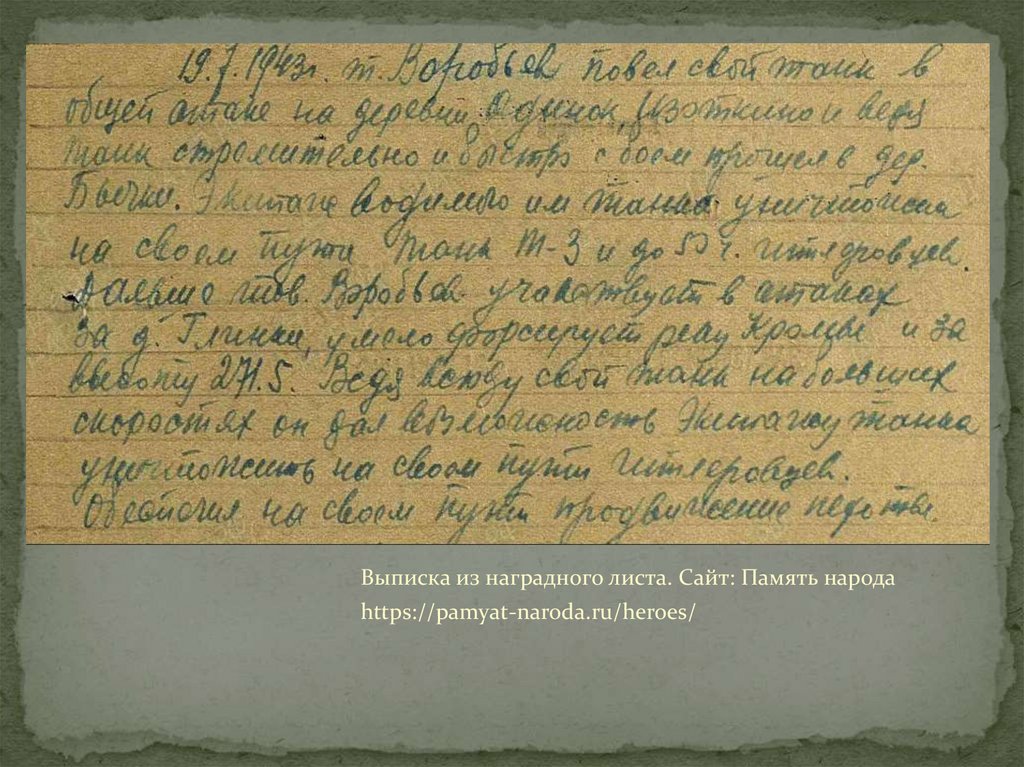 19.7.1943г. т. Воробьев повел свой танк в
общей атаке на деревни Одинок, Изоткино и ведя
танк стремительно и быстро с боем прошел в дер.
Бычки. Экипаж водимого им танка уничтожил
на своем пути танк Т-3 и до 50 ч. гитлеровцев.
Дальше тов. Воробьев участвует в атаках
за д. Глинки, умело форсирует реку Кромы и за
высоту 271.5. Ведя всюду свой танк на больших
скоростях он дал возможность экипажу танка
уничтожить на своем пути гитлеровцев.
Обеспечил на своем пути продвижение пехоты.
Выписка из наградного листа. Сайт: Память народа
https://pamyat-naroda.ru/heroes/